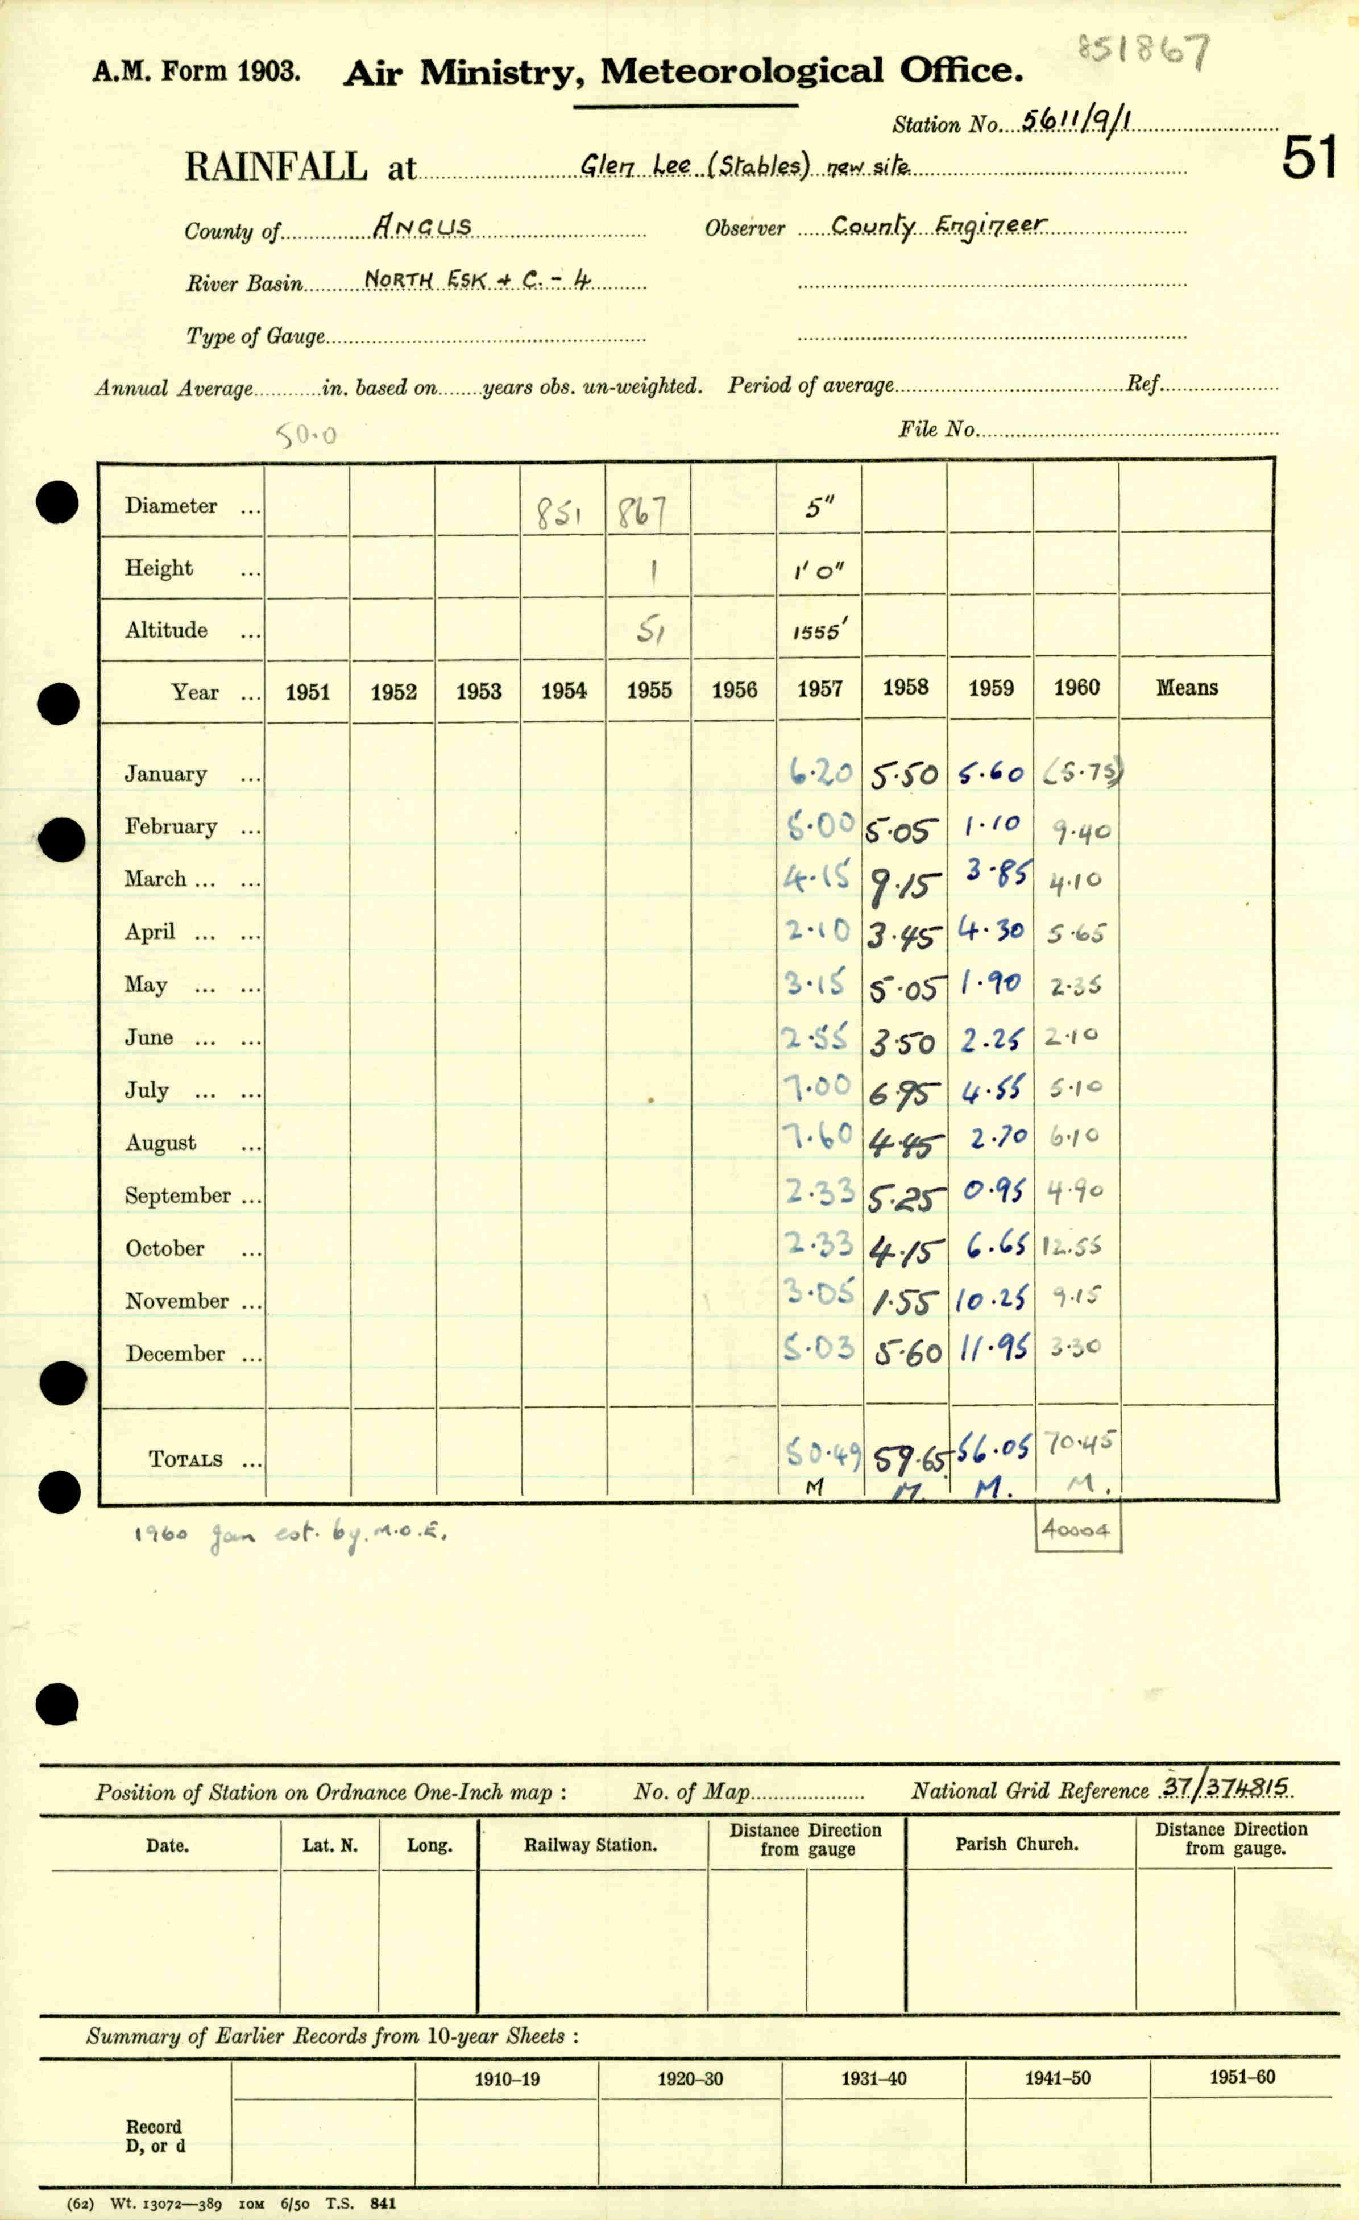 851867
A.M. Form 1903. Air Ministry, Meteorological Office.
Station No. 5611/9/1
51
RAINFALL at Glen Lee (Stables) new site
County of ANGUS Observer County Engineer
River Basin NORTH ESK + C. - 4
Type of Gauge
Annual Average in. based on years obs. un-weighted. Period of average Ref.
50.0
File No.
Diameter ... 851 867 5"
Height ... 1 1' 0"
Altitude ... 51 1555'
Year ... 1951 1952 1953 1954 1955 1956 1957 1958 1959 1960 Means
January ... 6.20 5.50 5.60 (5.75)
February ... 5.00 5.05 1.10 9.40
March ... ... 4.15 9.15 3.85 4.10
April ... ... 2.10 3.45 4.30 5.65
May ... ... 3.15 5.05 1.90 2.35
June ... ... 2.55 3.50 2.25 2.10
July ... ... 7.00 6.95 4.55 5.10
August ... 7.60 4.45 2.70 6.10
September ... 2.33 5.25 0.95 4.90
October ... 2.33 4.15 6.65 12.55
November ... 3.05 1.55 10.25 9.15
December ... 5.03 5.60 11.95 3.30
TOTALS ... 50.49 59.65 56.05 70.45
M M. M. M.
1960 Jan est. by. M.O.E. 40004
Position of Station on Ordnance One-Inch map : No. of Map National Grid Reference 37/374815
Date. Lat. N. Long. Railway Station. Distance Direction from gauge Parish Church. Distance Direction from gauge.
Summary of Earlier Records from 10-year Sheets :
1910–19 1920–30 1931–40 1941–50 1951–60
Record
D, or d
(62) Wt. 13072—389 10M 6/50 T.S. 841